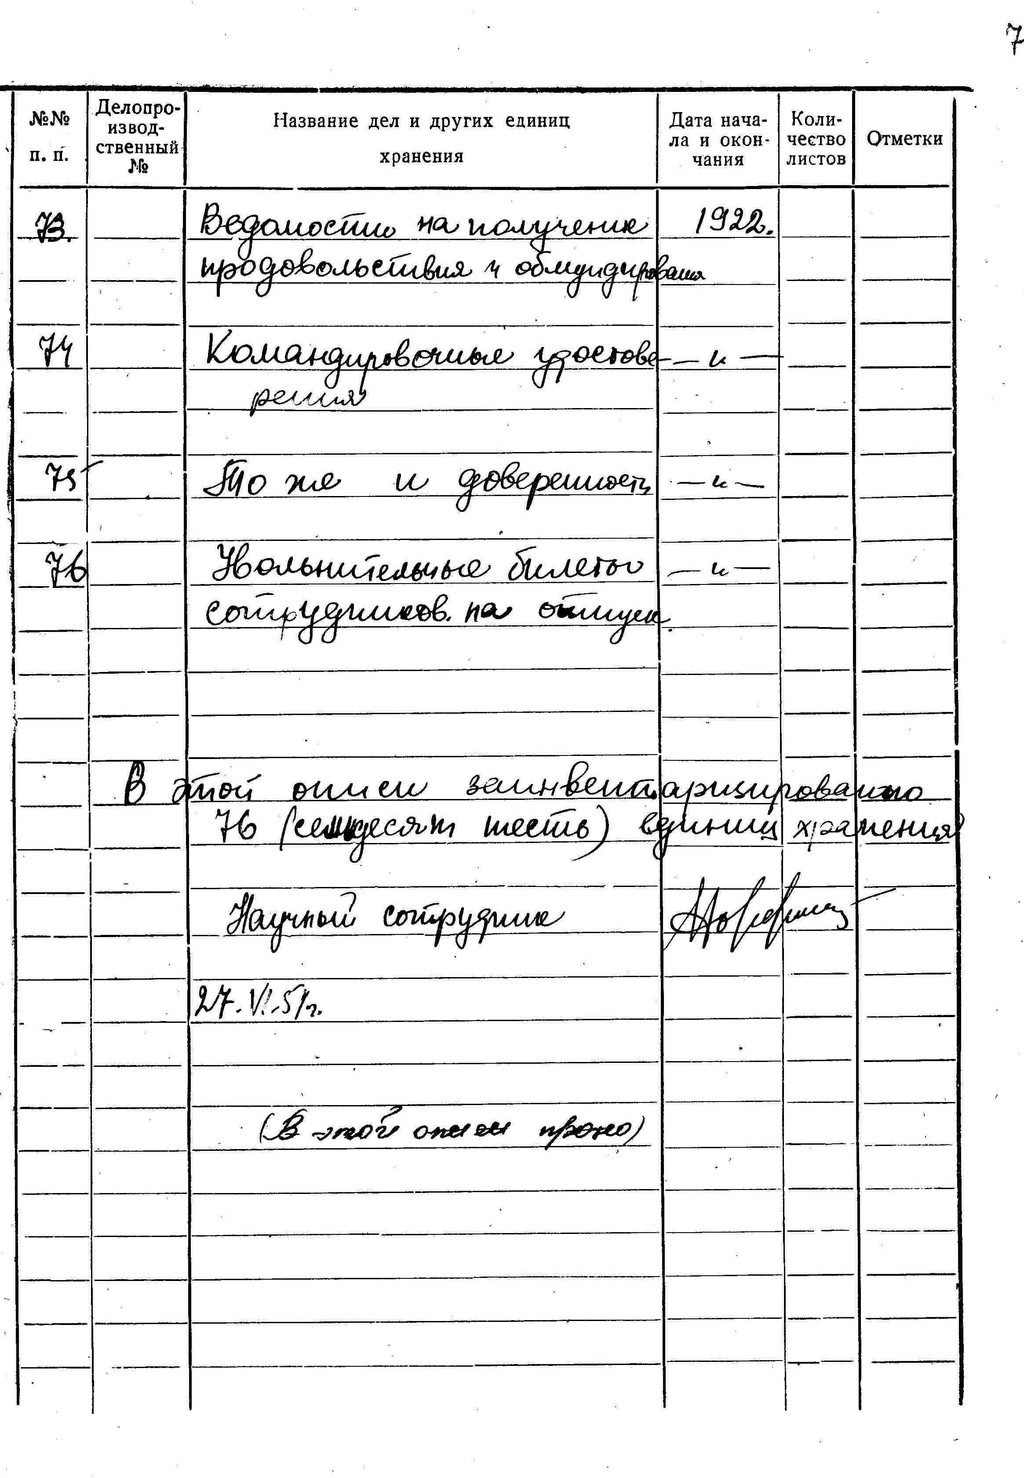 7
№№ п. п.
Делопро-
извод-
ственный
№
Название дел и других единиц
хранения
Дата нача-
ла и окон-
чания
Коли-
чество
листов
Отметки
73. Ведомости на получение 1922.
продовольствия и обмундирования
74 Командировочные удостове- — и —
рения
75 То же и доверенность — и —
76 Увольнительные билеты — и —
сотрудников на отпуск
В этой описи заинвентаризировано
76 (семьдесят шесть) единиц хранения
Научный сотрудник
27.VI.51г.
(В этой описи